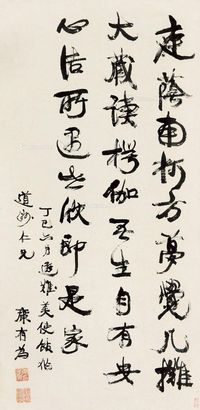 蔭南柯方夢覺几攤
大藏讀楞伽吾生自有安
心法所遇然即是家
丁巳六月避難美使館作
道仁兄
康有為